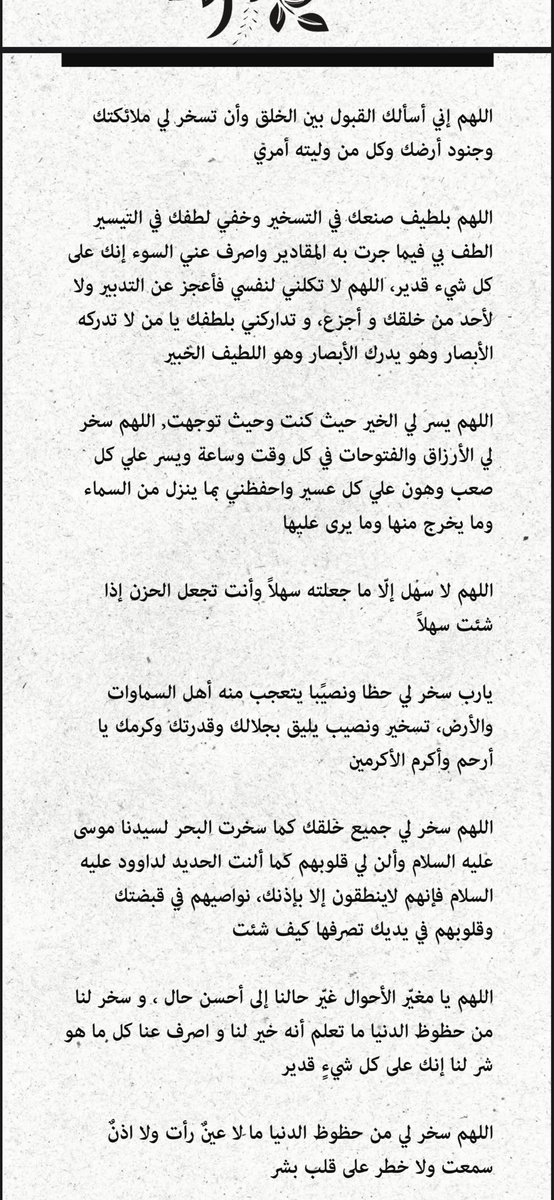 اللهم إني أسألك القبول بين الخلق وأن تسخر لي ملائكتك
وجنود أرضك وكل من وليته أمري
اللهم بلطيف صنعك في التسخير وخفي لطفك في التيسير
الطف بي فيما جرت به المقادير واصرف عني السوء إنك على
كل شيء قدير، اللهم لا تكلني لنفسي فأعجز عن التدبير ولا
لأحد من خلقك و أجزع، و تداركني بلطفك يا من لا تدركه
الأبصار وهو يدرك الأبصار وهو اللطيف الخبير
اللهم يسر لي الخير حيث كنت وحيث توجهت, اللهم سخر
لي الأرزاق والفتوحات في كل وقت وساعة ويسر علي كل
صعب وهون علي كل عسير واحفظني بما ينزل من السماء
وما يخرج منها وما يرى عليها
اللهم لا سهل إلّا ما جعلته سهلاً وأنت تجعل الحزن إذا
شئت سهلاً
يارب سخر لي حظا ونصيبًا يتعجب منه أهل السماوات
والأرض، تسخير ونصيب يليق بجلالك وقدرتك وكرمك يا
أرحم وأكرم الأكرمين
اللهم سخر لي جميع خلقك كما سخرت البحر لسيدنا موسى
عليه السلام وألن لي قلوبهم كما ألنت الحديد لداوود عليه
السلام فإنهم لاينطقون إلا بإذنك، نواصيهم في قبضتك
وقلوبهم في يديك تصرفها كيف شئت
اللهم يا مغيّر الأحوال غيّر حالنا إلى أحسن حال ، و سخر لنا
من حظوظ الدنيا ما تعلم أنه خير لنا و اصرف عنا كل ما هو
شر لنا إنك على كل شيءٍ قدير
اللهم سخر لي من حظوظ الدنيا ما لا عينٌ رأت ولا اذنٌ
سمعت ولا خطر على قلب بشر